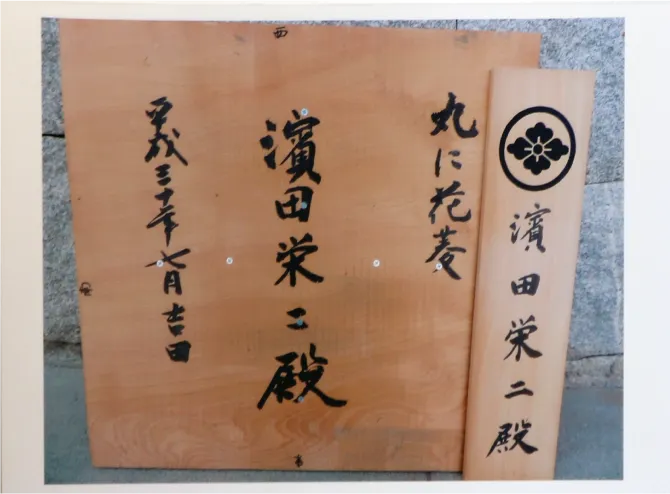 濱田栄二殿
西
丸に花菱
濱田栄二殿
平成三十年七月吉田